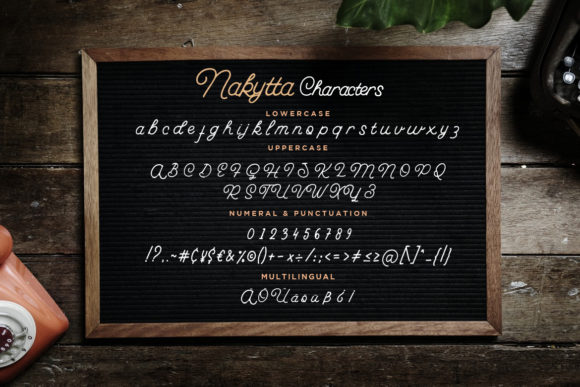 Nakytta Characters
LOWERCASE
abcdefghijklmnopqrstuvwxyz
UPPERCASE
ABCDEFGHIJKLMNOPQ
RSTUVWXYZ
NUMERAL & PUNCTUATION
0123456789
MULTILINGUAL